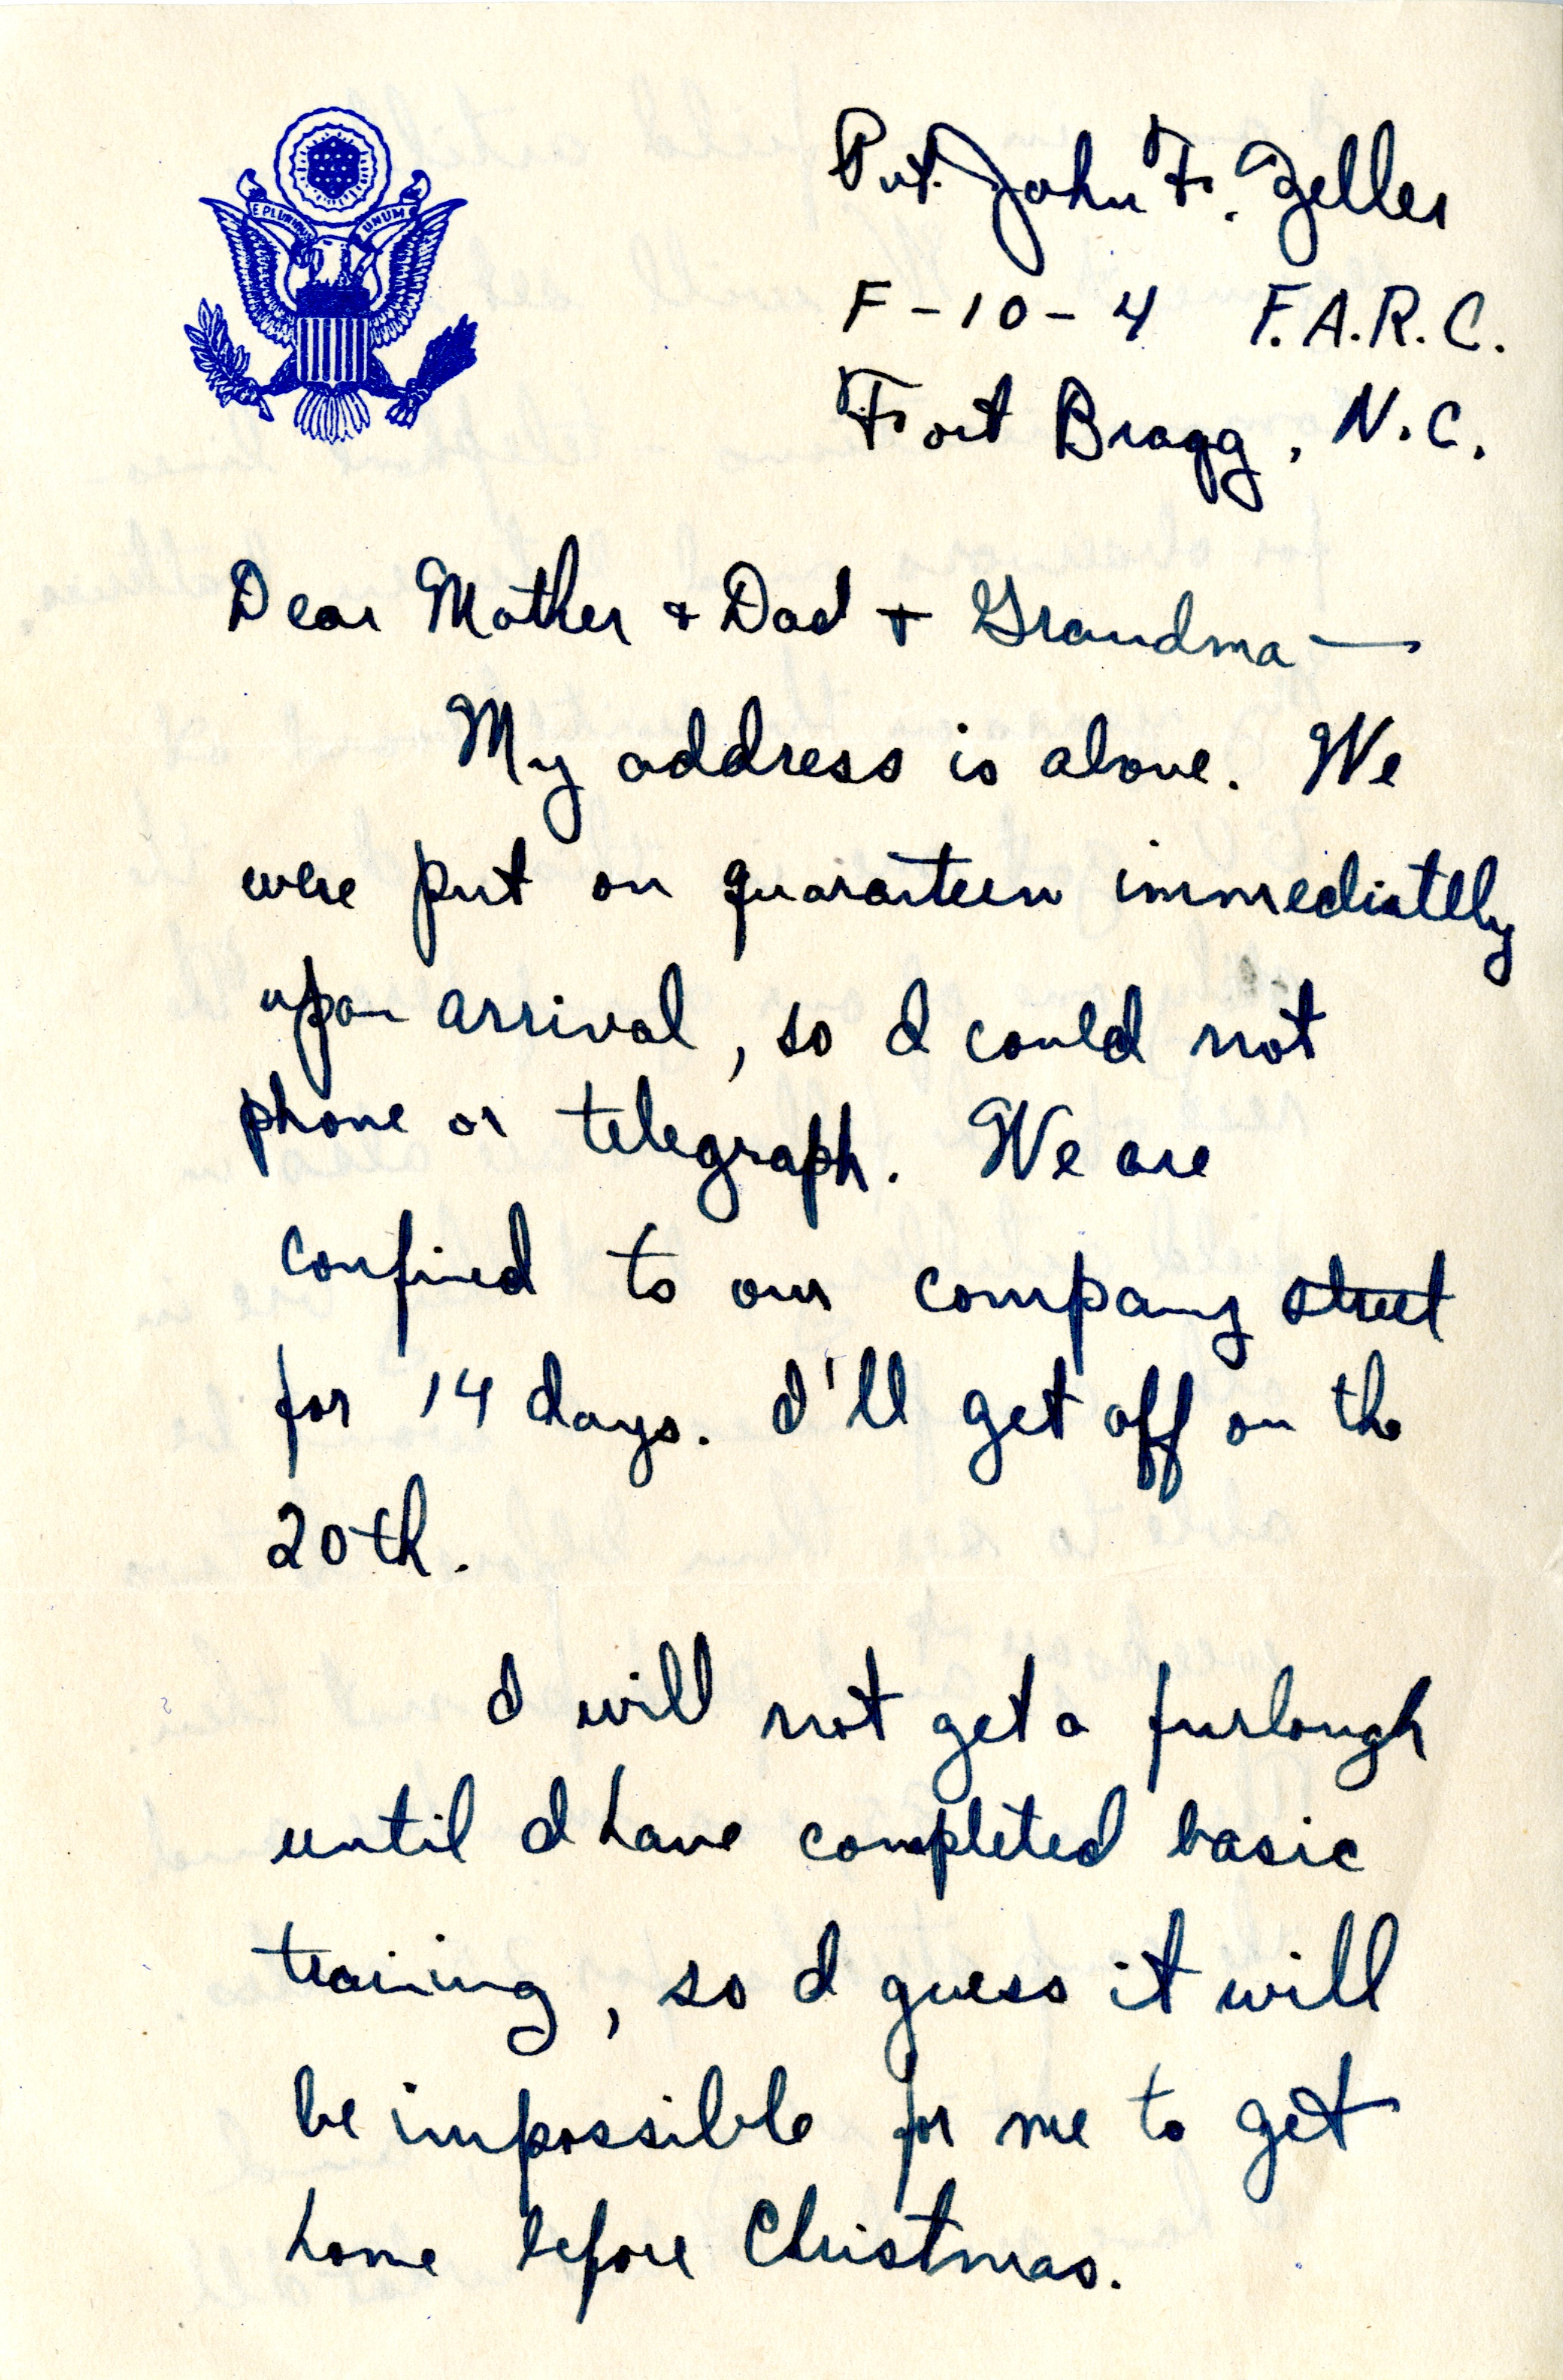 E PLURIBUS UNUM
Pvt. John F. Zeller
F-10-4 F.A.R.C.
Fort Bragg, N.C.
Dear Mother + Dad + Grandma —
My address is above. We
were put on quaranteen immediatelly
upon arrival, so I could not
phone or telegraph. We are
confined to our company street
for 14 days. I'll get off on the
20th.
I will not get a furlough
until I have completed basic
training, so I guess it will
be impossible for me to get
home before Christmas.